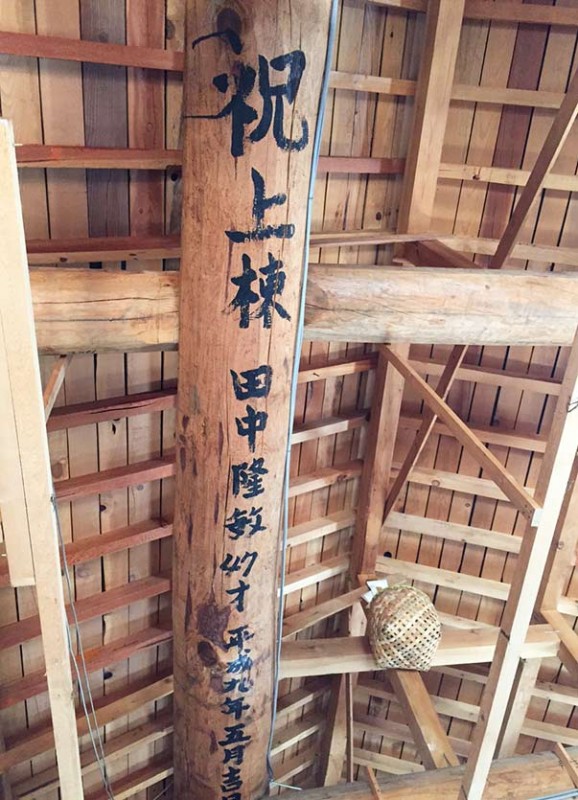 祝上棟 田中隆敏 47才 平成九年五月吉日